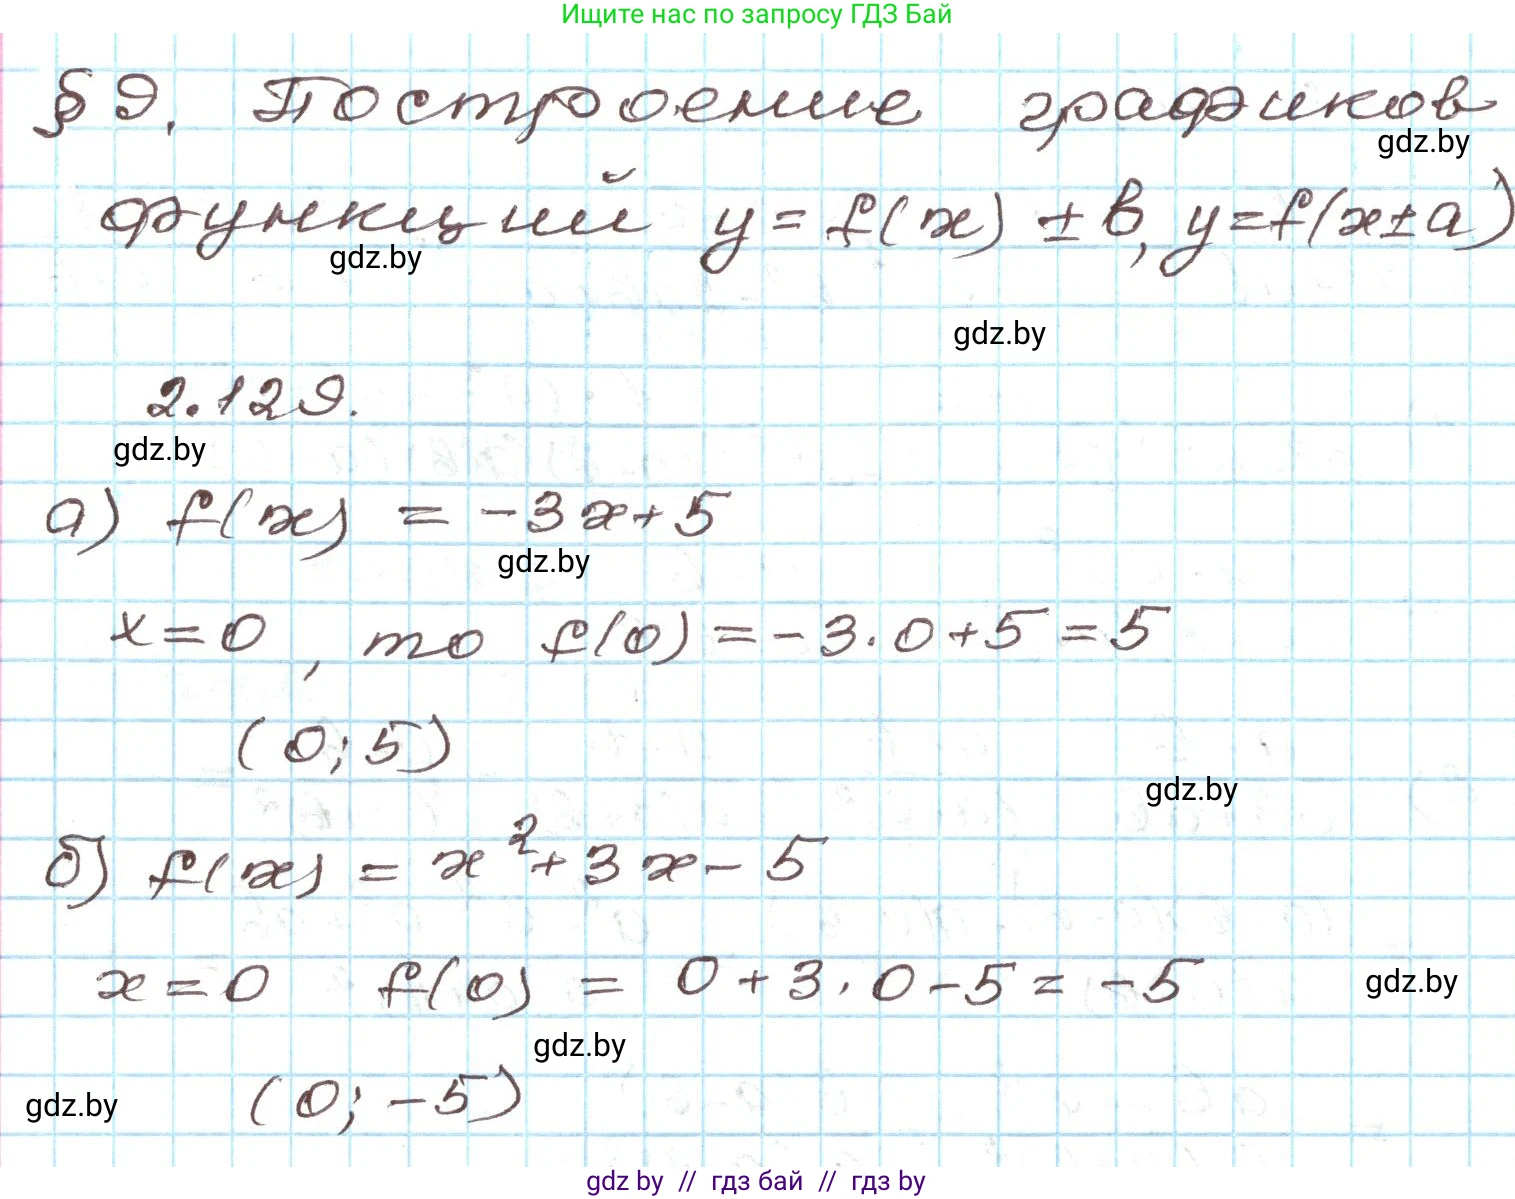 Ищите нас по запросу ГДЗ Бай
§ 9. Построение графиков
gdz.by
функций y = f(x) ± b, y = f(x ± a)
gdz.by
gdz.by
2.129.
gdz.by
а) f(x) = -3x + 5
gdz.by
x = 0, то f(0) = -3 · 0 + 5 = 5
(0; 5)
gdz.by
б) f(x) = x² + 3x - 5
x = 0 f(0) = 0 + 3 · 0 - 5 = -5
gdz.by
gdz.by
(0; -5)
gdz.by
gdz by // гдз бай // гдз by